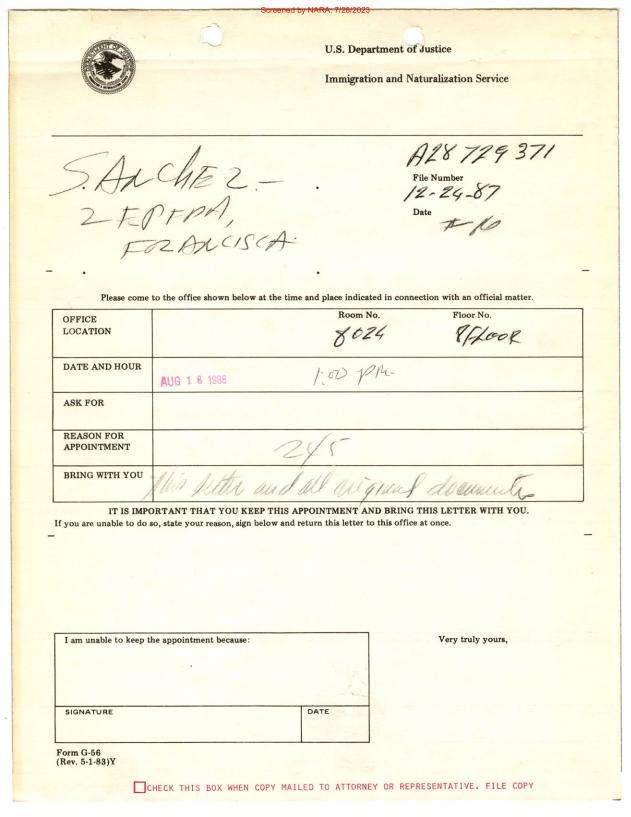 Screened by NARA, 7/28/2023
U.S. Department of Justice
Immigration and Naturalization Service
A28 729 371
File Number
12-24-87
Date
SANCHEZ-
FRANCISCA
Please come to the office shown below at the time and place indicated in connection with an official matter.
OFFICE LOCATION
Room No.
8024
Floor No.
FLOOR
DATE AND HOUR
AUG 16 1988
1:00 PM-
ASK FOR
REASON FOR APPOINTMENT
245
BRING WITH YOU
this letter and all original documents
IT IS IMPORTANT THAT YOU KEEP THIS APPOINTMENT AND BRING THIS LETTER WITH YOU.
If you are unable to do so, state your reason, sign below and return this letter to this office at once.
I am unable to keep the appointment because:
Very truly yours,
SIGNATURE
DATE
Form G-56
(Rev. 5-1-83)Y
CHECK THIS BOX WHEN COPY MAILED TO ATTORNEY OR REPRESENTATIVE. FILE COPY